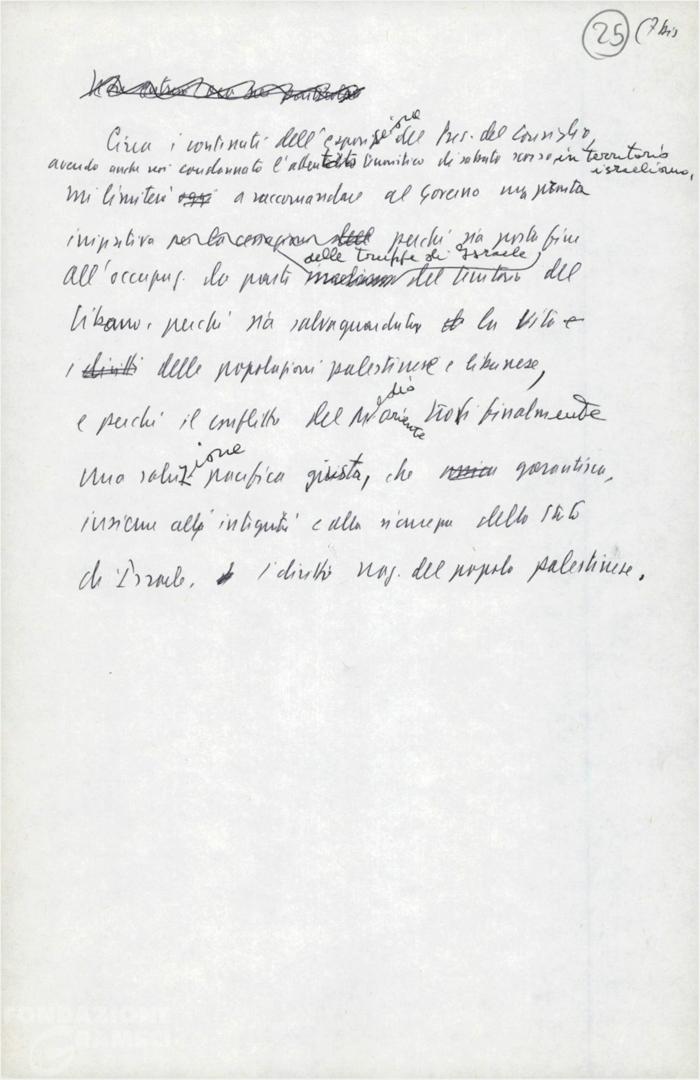 25 (7 bis
Circa i contenuti dell'esposizione del Pres. del Consiglio,
avendo anche noi condannato l'attentato terroristico di sabato scorso in territorio
israeliano,
mi limiterò oggi a raccomandare al Governo una pronta
iniziativa per la cessazione perché sia posto fine
delle truppe di Israele
all'occupaz. da parte del territorio del
Libano, perché sia salvaguardata la vita e
i diritti delle popolazioni palestinese e libanese,
e perché il conflitto del Medio Oriente trovi finalmente
una soluzione pacifica giusta, che garantisca,
insieme all'integrità e alla sicurezza dello Stato
di Israele, i diritti naz. del popolo palestinese.
FONDAZIONE
GRAMSCI